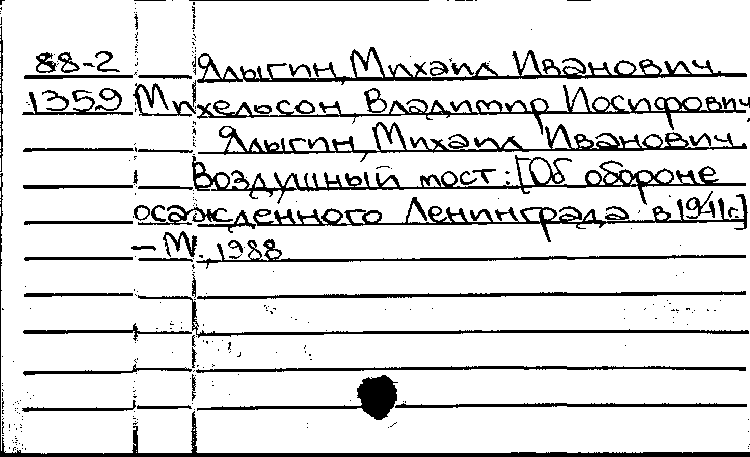 88-2 Ялыгин, Михаил Иванович.
1359 Михельсон, Владимир Иосифович
Ялыгин, Михаил Иванович.
Воздушный мост: [Об обороне
осажденного Ленинграда в 1941г.]
– М., 1988